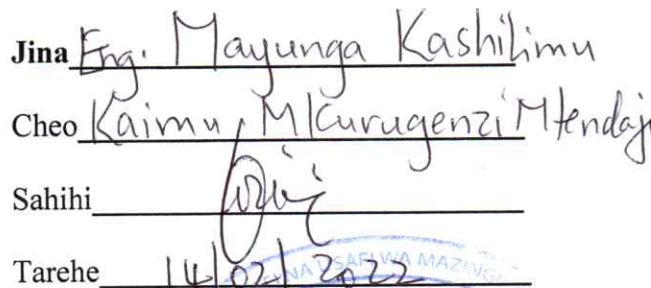 Jina Eng. Mayunga Kashilimu
Cheo Kaimu Mkurugenzi Mtendaji
Sahihi
Tarehe 14/02/2022
NA USAFI WA MAZINGI